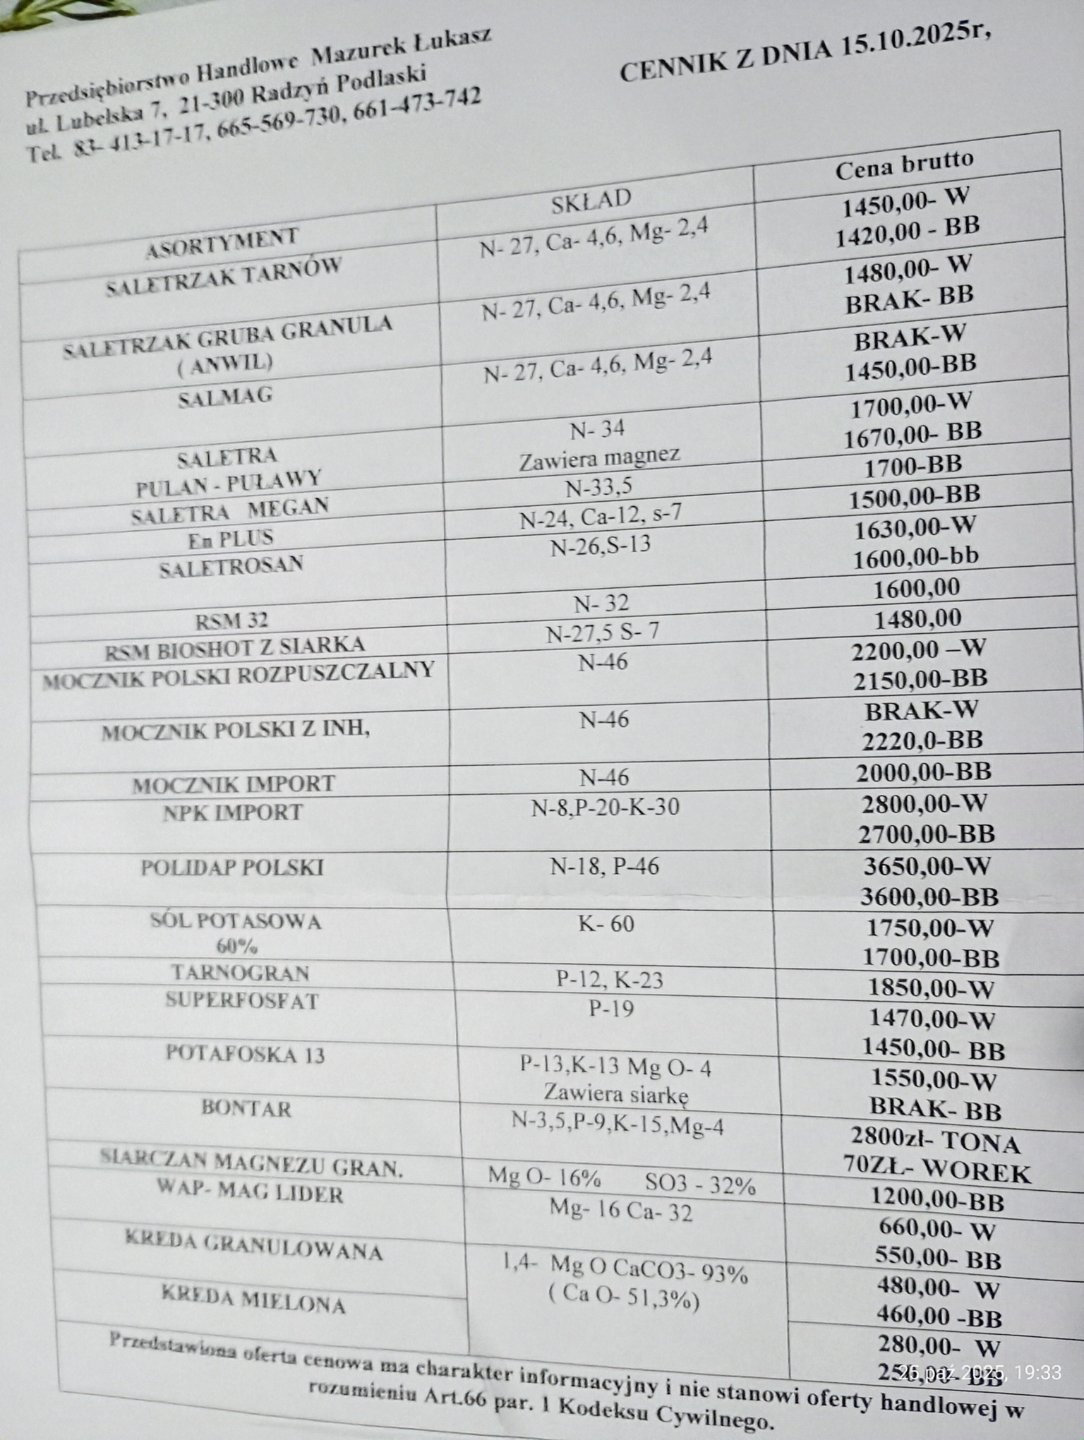 Przedsiębiorstwo Handlowe Mazurek Łukasz
ul. Lubelska 7, 21-300 Radzyń Podlaski
Tel. 83- 413-17-17, 665-569-730, 661-473-742
CENNIK Z DNIA 15.10.2025r,
ASORTYMENT SKŁAD Cena brutto
SALETRZAK TARNÓW N- 27, Ca- 4,6, Mg- 2,4 1450,00- W
1420,00 - BB
SALETRZAK GRUBA GRANULA N- 27, Ca- 4,6, Mg- 2,4 1480,00- W
( ANWIL) BRAK- BB
SALMAG N- 27, Ca- 4,6, Mg- 2,4 BRAK-W
1450,00-BB
SALETRA N- 34 1700,00-W
PULAN - PUŁAWY Zawiera magnez 1670,00- BB
SALETRA MEGAN N-33,5 1700-BB
En PLUS N-24, Ca-12, s-7 1500,00-BB
SALETROSAN N-26,S-13 1630,00-W
1600,00-bb
RSM 32 N- 32 1600,00
RSM BIOSHOT Z SIARKA N-27,5 S- 7 1480,00
MOCZNIK POLSKI ROZPUSZCZALNY N-46 2200,00 –W
2150,00-BB
MOCZNIK POLSKI Z INH, N-46 BRAK-W
2220,0-BB
MOCZNIK IMPORT N-46 2000,00-BB
NPK IMPORT N-8,P-20-K-30 2800,00-W
2700,00-BB
POLIDAP POLSKI N-18, P-46 3650,00-W
3600,00-BB
SÓL POTASOWA K- 60 1750,00-W
60% 1700,00-BB
TARNOGRAN P-12, K-23 1850,00-W
SUPERFOSFAT P-19 1470,00-W
1450,00- BB
POTAFOSKA 13 P-13,K-13 Mg O- 4 1550,00-W
Zawiera siarkę BRAK- BB
BONTAR N-3,5,P-9,K-15,Mg-4 2800zł- TONA
70ZŁ- WOREK
SIARCZAN MAGNEZU GRAN. Mg O- 16% SO3 - 32% 1200,00-BB
WAP- MAG LIDER Mg- 16 Ca- 32 660,00- W
550,00- BB
KREDA GRANULOWANA 1,4- Mg O CaCO3- 93% 480,00- W
( Ca O- 51,3%) 460,00 -BB
KREDA MIELONA 280,00- W
BB
Przedstawiona oferta cenowa ma charakter informacyjny i nie stanowi oferty handlowej w
rozumieniu Art.66 par. 1 Kodeksu Cywilnego.
26 paź 2025, 19:33